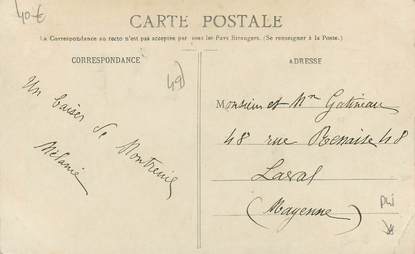 40-€
CARTE POSTALE
La Correspondance au recto n'est pas acceptée par tous les Pays Etrangers. (Se renseigner à la Poste.)
CORRESPONDANCE
49)
Un baiser de Montreuil
Mélanie
ADRESSE
Monsieur et Mme Gatineau
48 rue Renaise 48
Laval
(Mayenne)